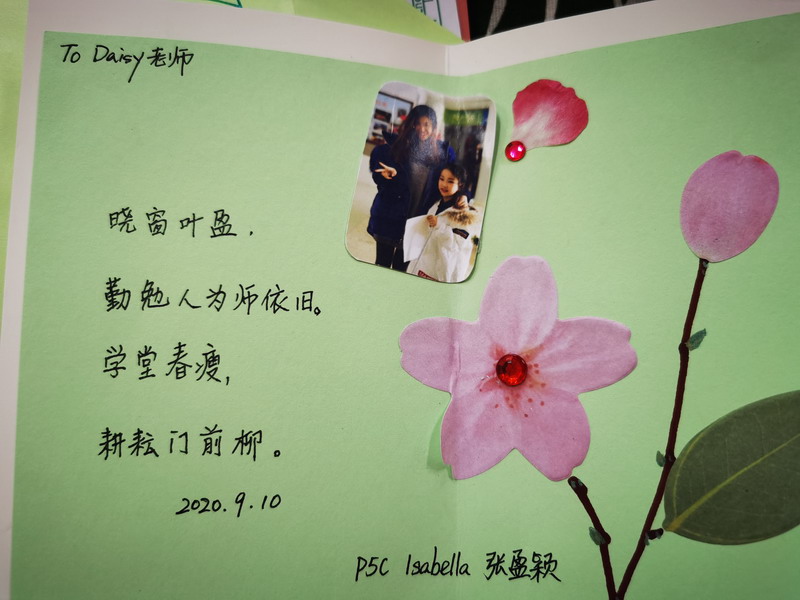 To Daisy老师
晓窗叶盈.
勤勉人为师依旧。
学堂春瘦,
耕耘门前柳。
2020.9.10
P5C Isabella 张盈颖